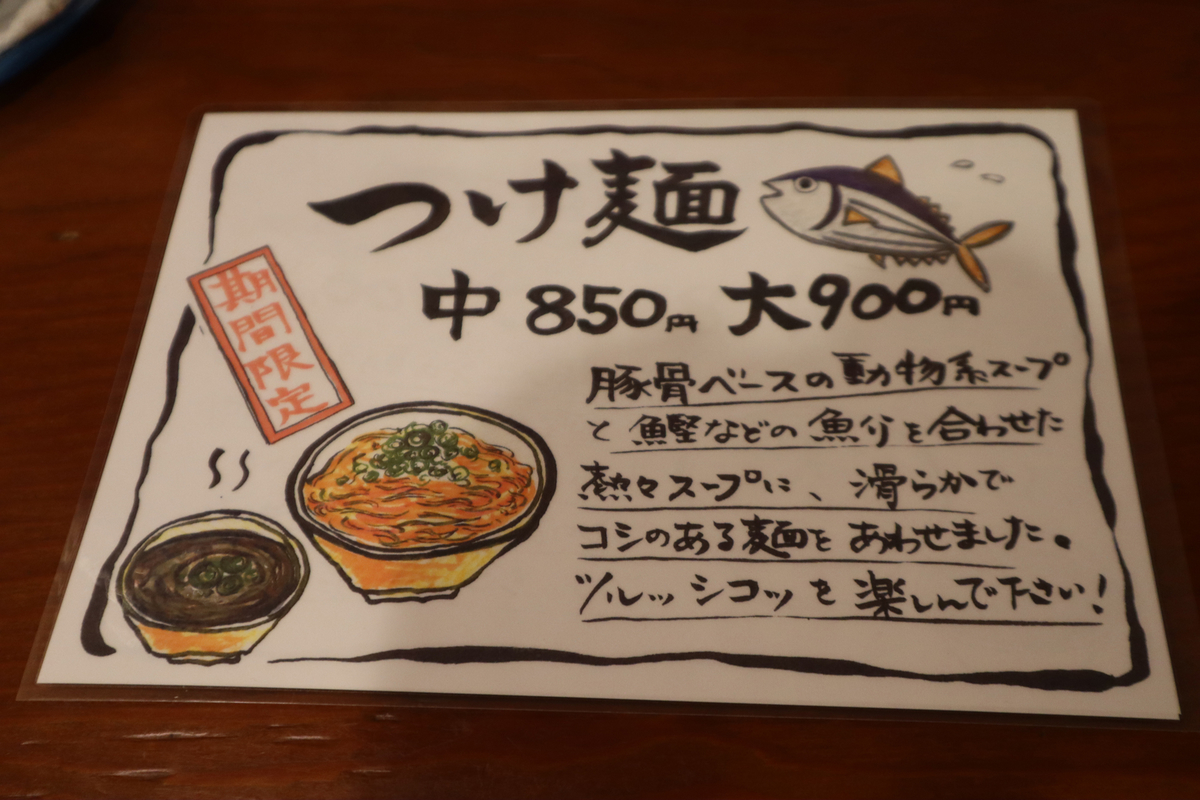 つけ麺
中 850円 大900円
期間限定
豚骨ベースの動物系スープ
と 魚堅などの 魚介を合わせた
熱々スープに、滑らかで
コシのある麺を あわせました。
ツルッ シコッを 楽しんで下さい!